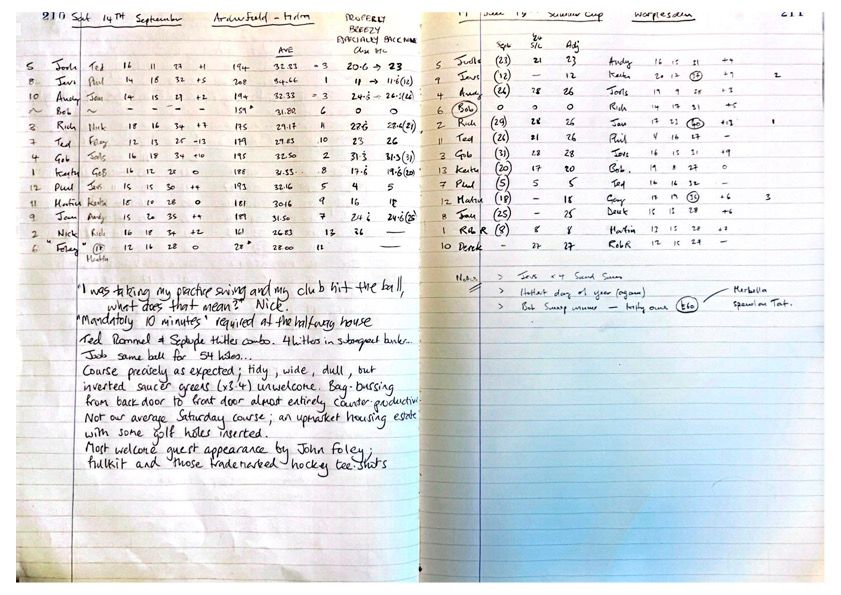 210 Sat 14TH September Ardenfield - Hdn
PROPERLY
BREEZY
ESPECIALLY BACK NINE
AVE
5 Josh Ted 16 11 27 +1 194 32.33 = 3 20.6 → 23
8 Jevs Phil 14 18 32 +5 208 34.66 1 11 → 11.6 (12)
10 Andy Jon 14 15 29 +2 194 32.33 = 3
~ Bob ~ - - - - 159* 31.80 6 0 0
3 Rich Nick 18 16 34 +7 175 29.17 11
7 Ted Foley 12 13 25 -13 179 29.83 10 23 26
4 Gob Josh 16 18 34 +10 195 32.50 2 31.3 31.3 (31)
1 Keith Gob 16 12 28 0 188 31.33 8
12 Phil Jevs 15 15 30 +4 193 32.16 5 4 5
11 Martin Keith 18 10 28 0 181 30.16 9 16 18
9 Jon Andy 15 20 35 +9 189 31.50 7
2 Nick Rich 16 18 34 +2 161 26.83 13 36
6 "Foley" 12 16 28 0 28* 28.00 12
Martin
"I was taking my practice swing and my club hit the ball,
what does that mean?" Nick.
"Mandatory 10 minutes" required at the halfway house
Ted Rommel & Hitler combo. 4 hitters in subsequent bunker...
Josh same ball for 54 holes...
Course precisely as expected; tidy, wide, dull, but
inverted saucer greens (x3.4) unwelcome. Bag-bursing
from back door to front door almost entirely counter-productive
Not our average Saturday course; an upmarket housing estate
with some golf holes inserted.
Most welcome guest appearance by John Foley;
full kit and those trademarked hockey tee-shots
Summer Cup Worplesdon 211
Sept '24 S/C Adj
5 Josh (23) 21 23 Andy 16 15 31 +4
9 Jevs (12) - 12 Keith 20 17 37 +9 2
4 Andy (26) 28 26 Josh 19 9 28 +3
6 Bob 0 0 0 Rich 14 17 31 +5
2 Rich (29) 28 26 Jon 17 23 40 +13 1
11 Ted (26) 21 26 Phil
3 Gob (31) 28 28 Jevs 16 15 31 +9
13 Keith (20) 17 20 Bob 19 8 27 0
7 Phil (5) 5 5 Ted 16 16 32 -
12 Martin (18) - 18 +6 3
8 Jon (25) - 25 Derek 15 13 28 +6
1 Rob R (8) 8 8 Martin
10 Derek - 27 27 Rob R 12 15 27 -
Notes > Jevs
> Hottest day of year (again)
> Bob Sweep winner £60 Marbella